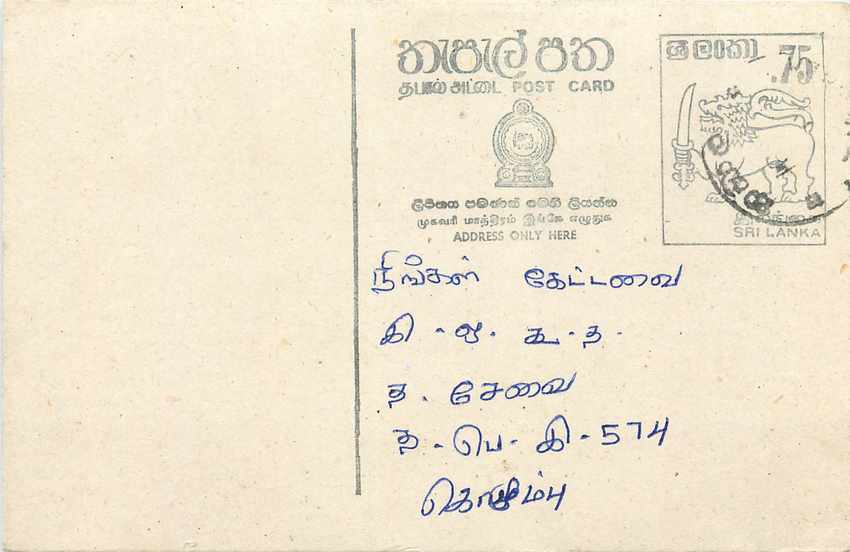 තැපැල් පත
தபால் அட்டை POST CARD
ලිපිනය පමණක් මෙහි ලියන්න
முகவரி மாத்திரம் இங்கே எழுதுக
ADDRESS ONLY HERE
ශ්‍රී ලංකා .75
இலங்கை
SRI LANKA
நீங்கள் கேட்டவை
கி - ஒ - கூ - த -
த . சேவை
த - பெ - கி - 574
கொழும்பு